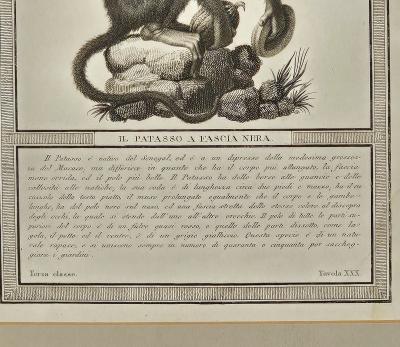 IL PATASSO A FASCIA NERA.
Il Patasso é nativo del Senegal, ed é a un dipresso della medesima grossez-
za del Macaco, ma differisce in quanto che ha il corpo più allungato, la faccia
meno orrida, ed il pelo più bello. Il Patasso ha delle borse alle guancie e delle
callosità alle natiche, la sua coda è di lunghezza circa due piedi e mezzo, ha il
cucuzzolo della testa piatto, il muso prolungato egualmente che il corpo e le gambe
ha del pelo nero sul naso, ed una fascia stretta dello stesso colore al disopra
degli occhi, la quale si stende dall'uno all'altro orecchio. Il pelo di tutte le parti su-
periori del corpo è di un fulvo quasi rosso, e quello delle parti dissotto, come la
gola, il petto ed il ventre, è di un grigio gialliccio. Questa specie è di un natu-
rale rapace, e si uniscono sempre in numero di quaranta o cinquanta per sacheg-
giare i giardini.
Terza classe.
Tavola XXX.